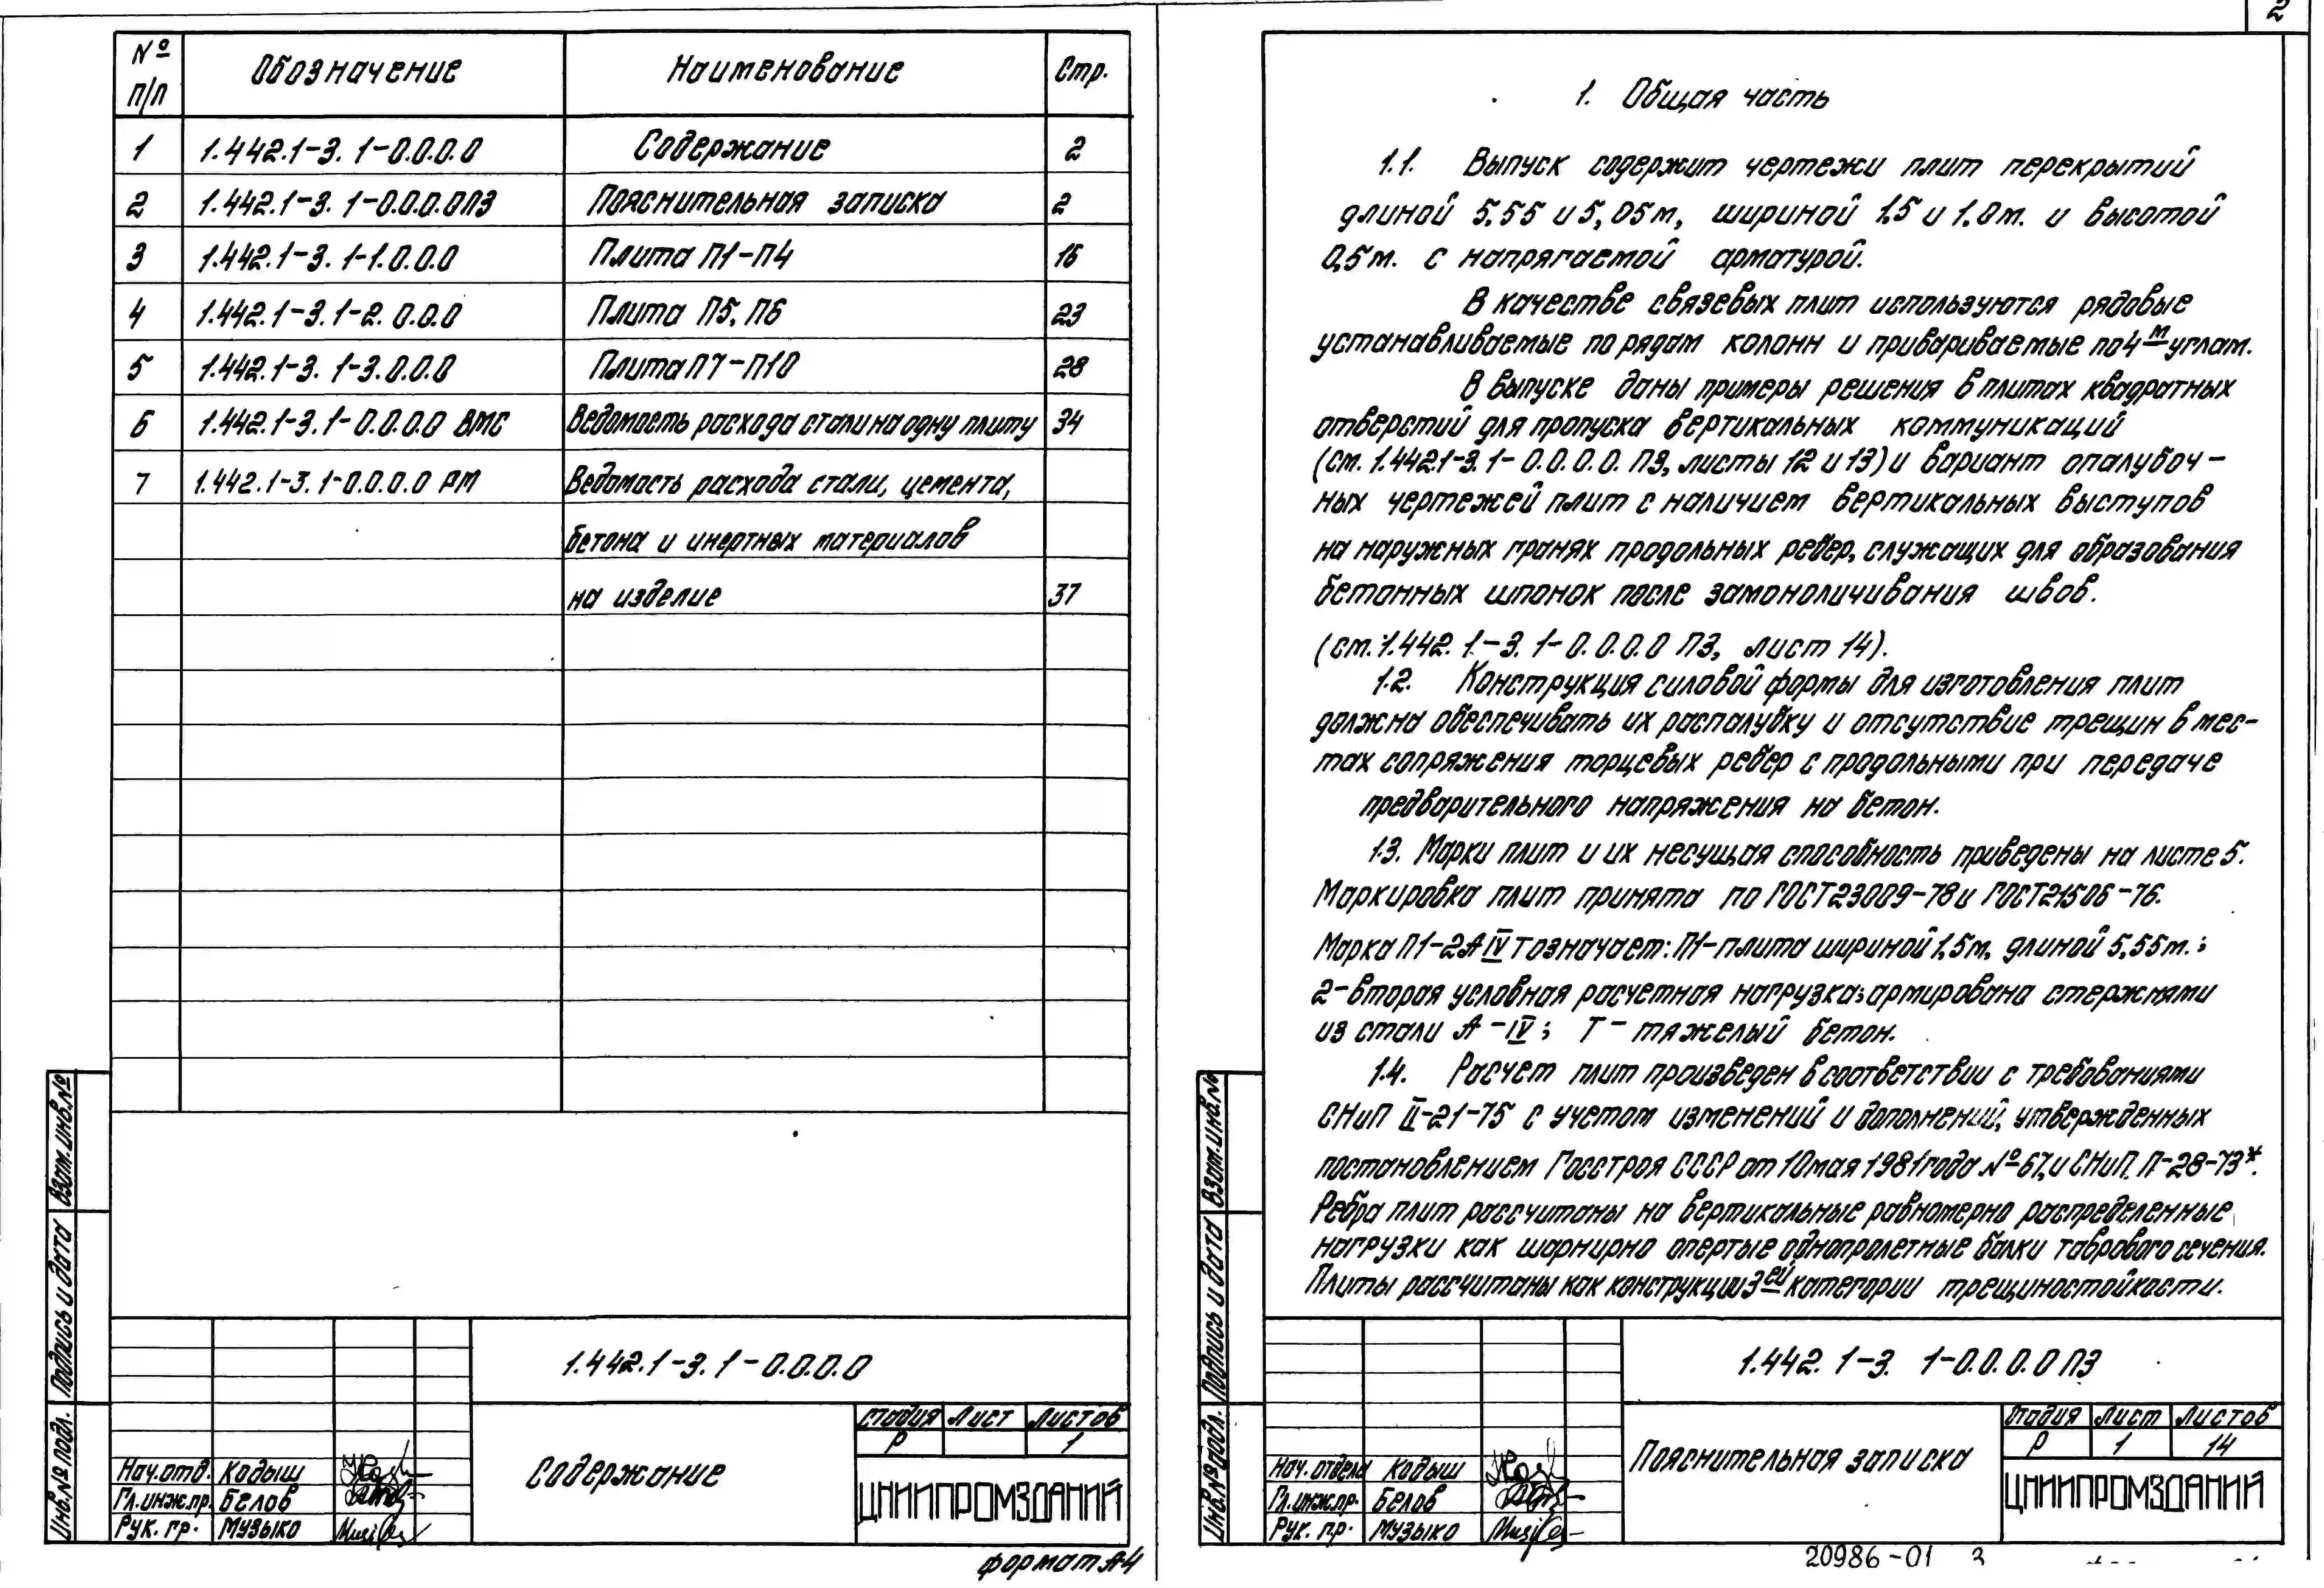 № п/п Обозначение Наименование Стр.
1 1.442.1-3. 1-0.0.0.0 Содержание 2
2 1.442.1-3. 1-0.0.0.0ПЗ Пояснительная записка 2
3 1.442.1-3. 1-1.0.0.0 Плита П1-П4 16
4 1.442.1-3.1-2.0.0.0 Плита П5, П6 23
5 1.442.1-3. 1-3.0.0.0 Плита П7-П10 28
6 1.442.1-3.1-0.0.0.0 ВМС Ведомость расхода стали на одну плиту 34
7 1.442.1-3.1-0.0.0.0 РМ Ведомость расхода стали, цемента,
бетона и инертных материалов
на изделие 37
Взам.инв.№
Подпись и дата
Инв.№ подл.
1.442.1-3.1-0.0.0.0
Содержание
Стадия Лист Листов
Р 1
ЦНИИПРОМЗДАНИЙ
Нач.отд. Кодыш
Гл.инж.пр. Белов
Рук. гр. Музыко
формат А4
2
1. Общая часть
1.1. Выпуск содержит чертежи плит перекрытий
длиной 5,55 и 5,05м, шириной 1,5 и 1,0м. и высотой
0,5м. с напрягаемой арматурой.
В качестве связевых плит используются рядовые
устанавливаемые по рядам колонн и привариваемые по 4м углам.
В выпуске даны примеры решения в плитах квадратных
отверстий для пропуска вертикальных коммуникаций
(см. 1.442.1-3.1-0.0.0.0. ПЗ, листы 12 и 13) и вариант опалубоч-
ных чертежей плит с наличием вертикальных выступов
на наружных гранях продольных ребер, служащих для образования
бетонных шпонок после замоноличивания швов.
(см. 1.442.1-3.1-0.0.0.0 ПЗ, лист 14).
1.2. Конструкция силовой формы для изготовления плит
должна обеспечивать их распалубку и отсутствие трещин в мес-
тах сопряжения торцевых ребер с продольными при передаче
предварительного напряжения на бетон.
1.3. Марки плит и их несущая способность приведены на листе 5.
Маркировка плит принята по ГОСТ 23009-78 и ГОСТ 21506-76.
Марка П1-2АIVТ означает: П1-плита шириной 1,5м, длиной 5,55м.;
2-вторая условная расчетная нагрузка; армирована стержнями
из стали А-IV; Т- тяжелый бетон.
1.4. Расчет плит произведен в соответствии с требованиями
СНиП II-21-75 с учетом изменений и дополнений, утвержденных
постановлением Госстроя СССР от 10мая 1981года №67, и СНиП. П-28-73*.
Ребра плит рассчитаны на вертикальные равномерно распределенные
нагрузки как шарнирно опертые однопролетные балки таврового сечения.
Плиты рассчитаны как конструкции 3ей категории трещиностойкости.
Взам.инв.№
Подпись и дата
Инв.№ подл.
1.442.1-3. 1-0.0.0.0 ПЗ
Пояснительная записка
Стадия Лист Листов
Р 1 14
ЦНИИПРОМЗДАНИЙ
Нач. отдела Кодыш
Гл.инж.пр. Белов
Рук. гр. Музыко
20986-01 3